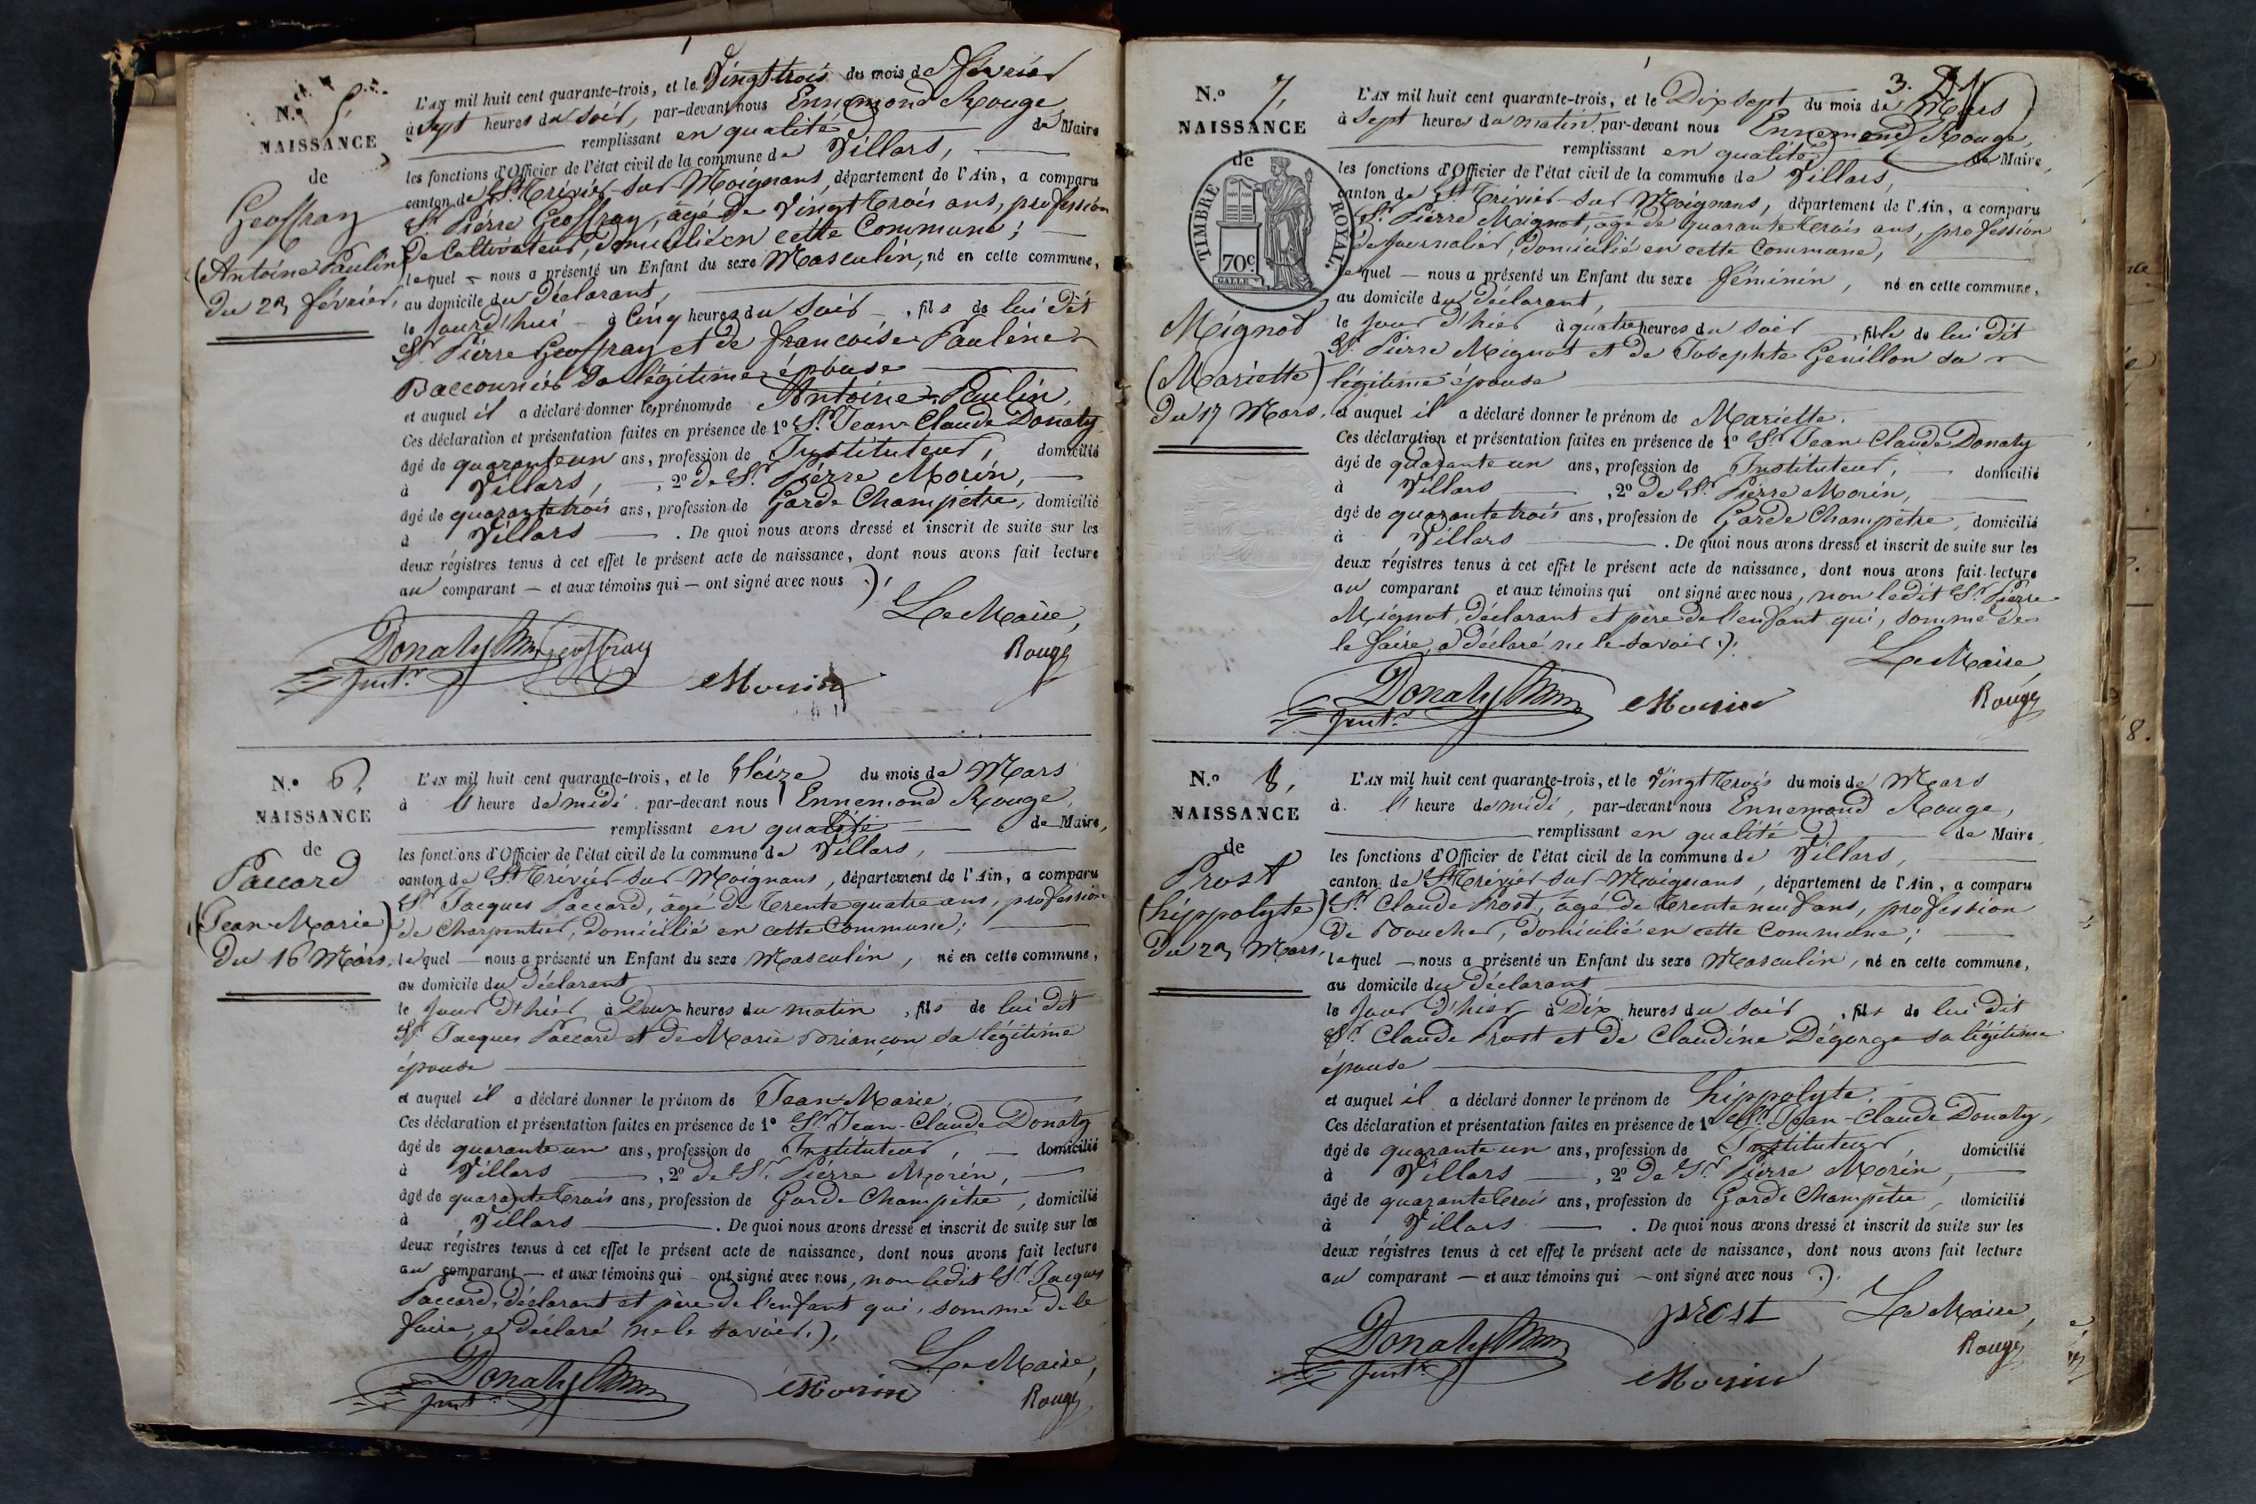 N.º 5,
NAISSANCE
de
Geoffray
(Antoine Paulin)
Du 23 février,
L'AN mil huit cent quarante-trois, et le Vingt trois du mois de février
à Sept heures du soir, par-devant nous Ennemond Rouge,
remplissant en qualité de Maire
les fonctions d'Officier de l'état civil de la commune de Villars,
canton de St Trivier-sur-Moignans, département de l'Ain, a comparu
Sr. Pierre Geoffray, âgé de Vingt trois ans, profession
de Cultivateur, domicilié en cette Commune;
lequel — nous a présenté un Enfant du sexe Masculin, né en cette commune,
au domicile du Déclarant,
le Jourd'hui à Cinq heures du soir, fils de lui dit
Sr. Pierre Geoffray et de françoise Pauline
Baccournier sa légitime épouse
et auquel il a déclaré donner les prénoms de Antoine-Paulin,
Ces déclaration et présentation faites en présence de 1º Sr. Jean-Claude Donaty
âgé de quarante un ans, profession de Instituteur, domicilié
à Villars, , 2º de Sr. Pierre Morin,
âgé de quarante trois ans, profession de Garde Champêtre, domicilié
à Villars . De quoi nous avons dressé et inscrit de suite sur les
deux régistres tenus à cet effet le présent acte de naissance, dont nous avons fait lecture
au comparant — et aux témoins qui — ont signé avec nous .).
Le Maire,
Donaty Geoffray
Instr.
Morin
Rouge
N.º 6,
NAISSANCE
de
Paccard
(Jean-Marie)
Du 16 Mars.
L'AN mil huit cent quarante-trois, et le Seize du mois de Mars
à 1 heure de midi par-devant nous Ennemond Rouge,
remplissant en qualité de Maire,
les fonctions d'Officier de l'état civil de la commune de Villars,
canton de St Trivier-sur-Moignans, département de l'Ain, a comparu
Sr Jacques Paccard, âgé de Trente quatre ans, profession
de Charpentier, domicilié en cette Commune;
lequel — nous a présenté un Enfant du sexe Masculin, né en cette commune,
au domicile du déclarant
le jour d'hier à Deux heures du matin, fils de lui dit
Sr Jacques Paccard et de Marie Briançon sa légitime
épouse
et auquel il a déclaré donner le prénom de Jean-Marie,
Ces déclaration et présentation faites en présence de 1º Sr. Jean-Claude Donaty
âgé de quarante un ans, profession de Instituteur, — domicilié
à Villars , 2º de Sr. Pierre Morin,
âgé de quarante trois ans, profession de Garde Champêtre, domicilié
à Villars . De quoi nous avons dressé et inscrit de suite sur les
deux régistres tenus à cet effet le présent acte de naissance, dont nous avons fait lecture
au comparant — et aux témoins qui — ont signé avec nous, non ledit Sr. Jacques
Paccard, déclarant et père de l'enfant qui, sommé de le
faire, a déclaré ne le savoir.).
Le Maire,
Donaty
Instr.
Morin
Rouge
3.
N.º 7,
NAISSANCE
de
TIMBRE ROYAL.
70c
Mignot
(Mariette)
Du 17 Mars.
L'AN mil huit cent quarante-trois, et le Dix sept du mois de Mars
à Sept heures du matin par-devant nous Ennemond Rouge,
remplissant en qualité de Maire,
les fonctions d'Officier de l'état civil de la commune de Villars,
canton de St. Trivier-sur-Moignans, département de l'Ain, a comparu
Sr. Pierre Mignot, âgé de quarante trois ans, profession
de Journalier, domicilié en cette Commune,
lequel — nous a présenté un Enfant du sexe féminin, né en cette commune,
au domicile du déclarant,
le jour d'hier à quatre heures du soir, fille de lui dit
Sr. Pierre Mignot et de Josephte Genillon sa
légitime épouse
et auquel il a déclaré donner le prénom de Mariette.
Ces déclaration et présentation faites en présence de 1º Sr Jean Claude Donaty
âgé de quarante un ans, profession de Instituteur, domicilié
à Villars , 2º de Sr Pierre Morin,
âgé de quarante trois ans, profession de Garde Champêtre, domicilié
à Villars . De quoi nous avons dressé et inscrit de suite sur les
deux régistres tenus à cet effet le présent acte de naissance, dont nous avons fait lecture
au comparant et aux témoins qui ont signé avec nous, non ledit Sr. Pierre
Mignot, déclarant et père de l'enfant qui, sommé de
le faire, a déclaré ne le savoir.).
Le Maire,
Donaty
Instr.
Morin
Rouge
N.º 8,
NAISSANCE
de
Prost
(hippolyte)
Du 23 Mars,
L'AN mil huit cent quarante-trois, et le Vingt Trois du mois de Mars
à 1 heure de midi, par-devant nous Ennemond Rouge,
remplissant en qualité de Maire
les fonctions d'Officier de l'état civil de la commune de Villars,
canton de St Trivier-sur-Moignans, département de l'Ain, a comparu
Sr. Claude Prost, âgé de trente neuf ans, profession
de Boucher, domicilié en cette Commune;
lequel — nous a présenté un Enfant du sexe Masculin, né en cette commune,
au domicile du déclarant
le jour d'hier à Dix heures du soir, fils de lui dit
Sr. Claude Prost et de Claudine Dégorge sa légitime
épouse
et auquel il a déclaré donner le prénom de hippolyte.
Ces déclaration et présentation faites en présence de 1º Sr. Jean-Claude Donaty,
âgé de quarante un ans, profession de Instituteur, domicilié
à Villars , 2º de Sr Pierre Morin,
âgé de quarante trois ans, profession de Garde Champêtre, domicilié
à Villars . De quoi nous avons dressé et inscrit de suite sur les
deux régistres tenus à cet effet le présent acte de naissance, dont nous avons fait lecture
au comparant — et aux témoins qui — ont signé avec nous .).
prost
Le Maire,
Donaty
Instr.
Morin
Rouge
8.